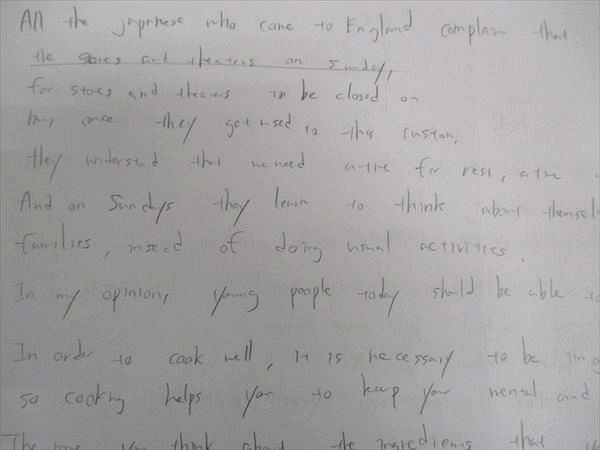 All the japanese who came to England complain that
the stores and theaters on Sunday,
for stores and theaters to be closed on
but, once they get used to this custom,
they understand that we need a time for rest, a time
And on Sundys they learn to think about themsel
families, insead of doing usual activities.
In my opinion, young people today should be able to
In order to cook well, it is necessary to be im
so cooking helps you to keep your mental and
The more you think about the ingredients that